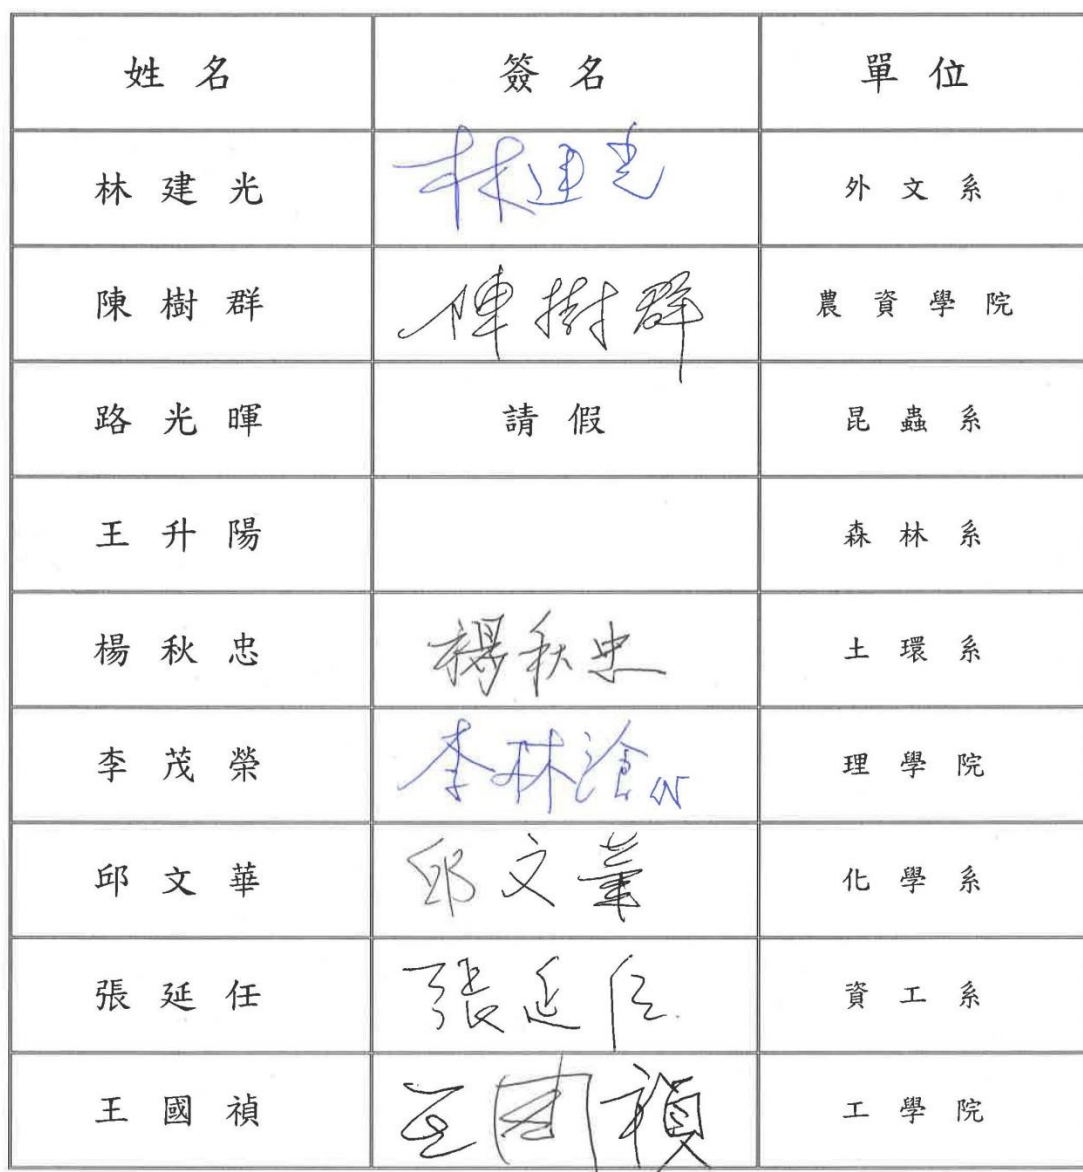 姓名 簽名 單位
林建光 林建光 外文系
陳樹群 陳樹群 農資學院
路光暉 請假 昆蟲系
王升陽 森林系
楊秋忠 楊秋忠 土環系
李茂榮 李林滄代 理學院
邱文華 邱文華 化學系
張延任 張延任 資工系
王國禎 王國禎 工學院